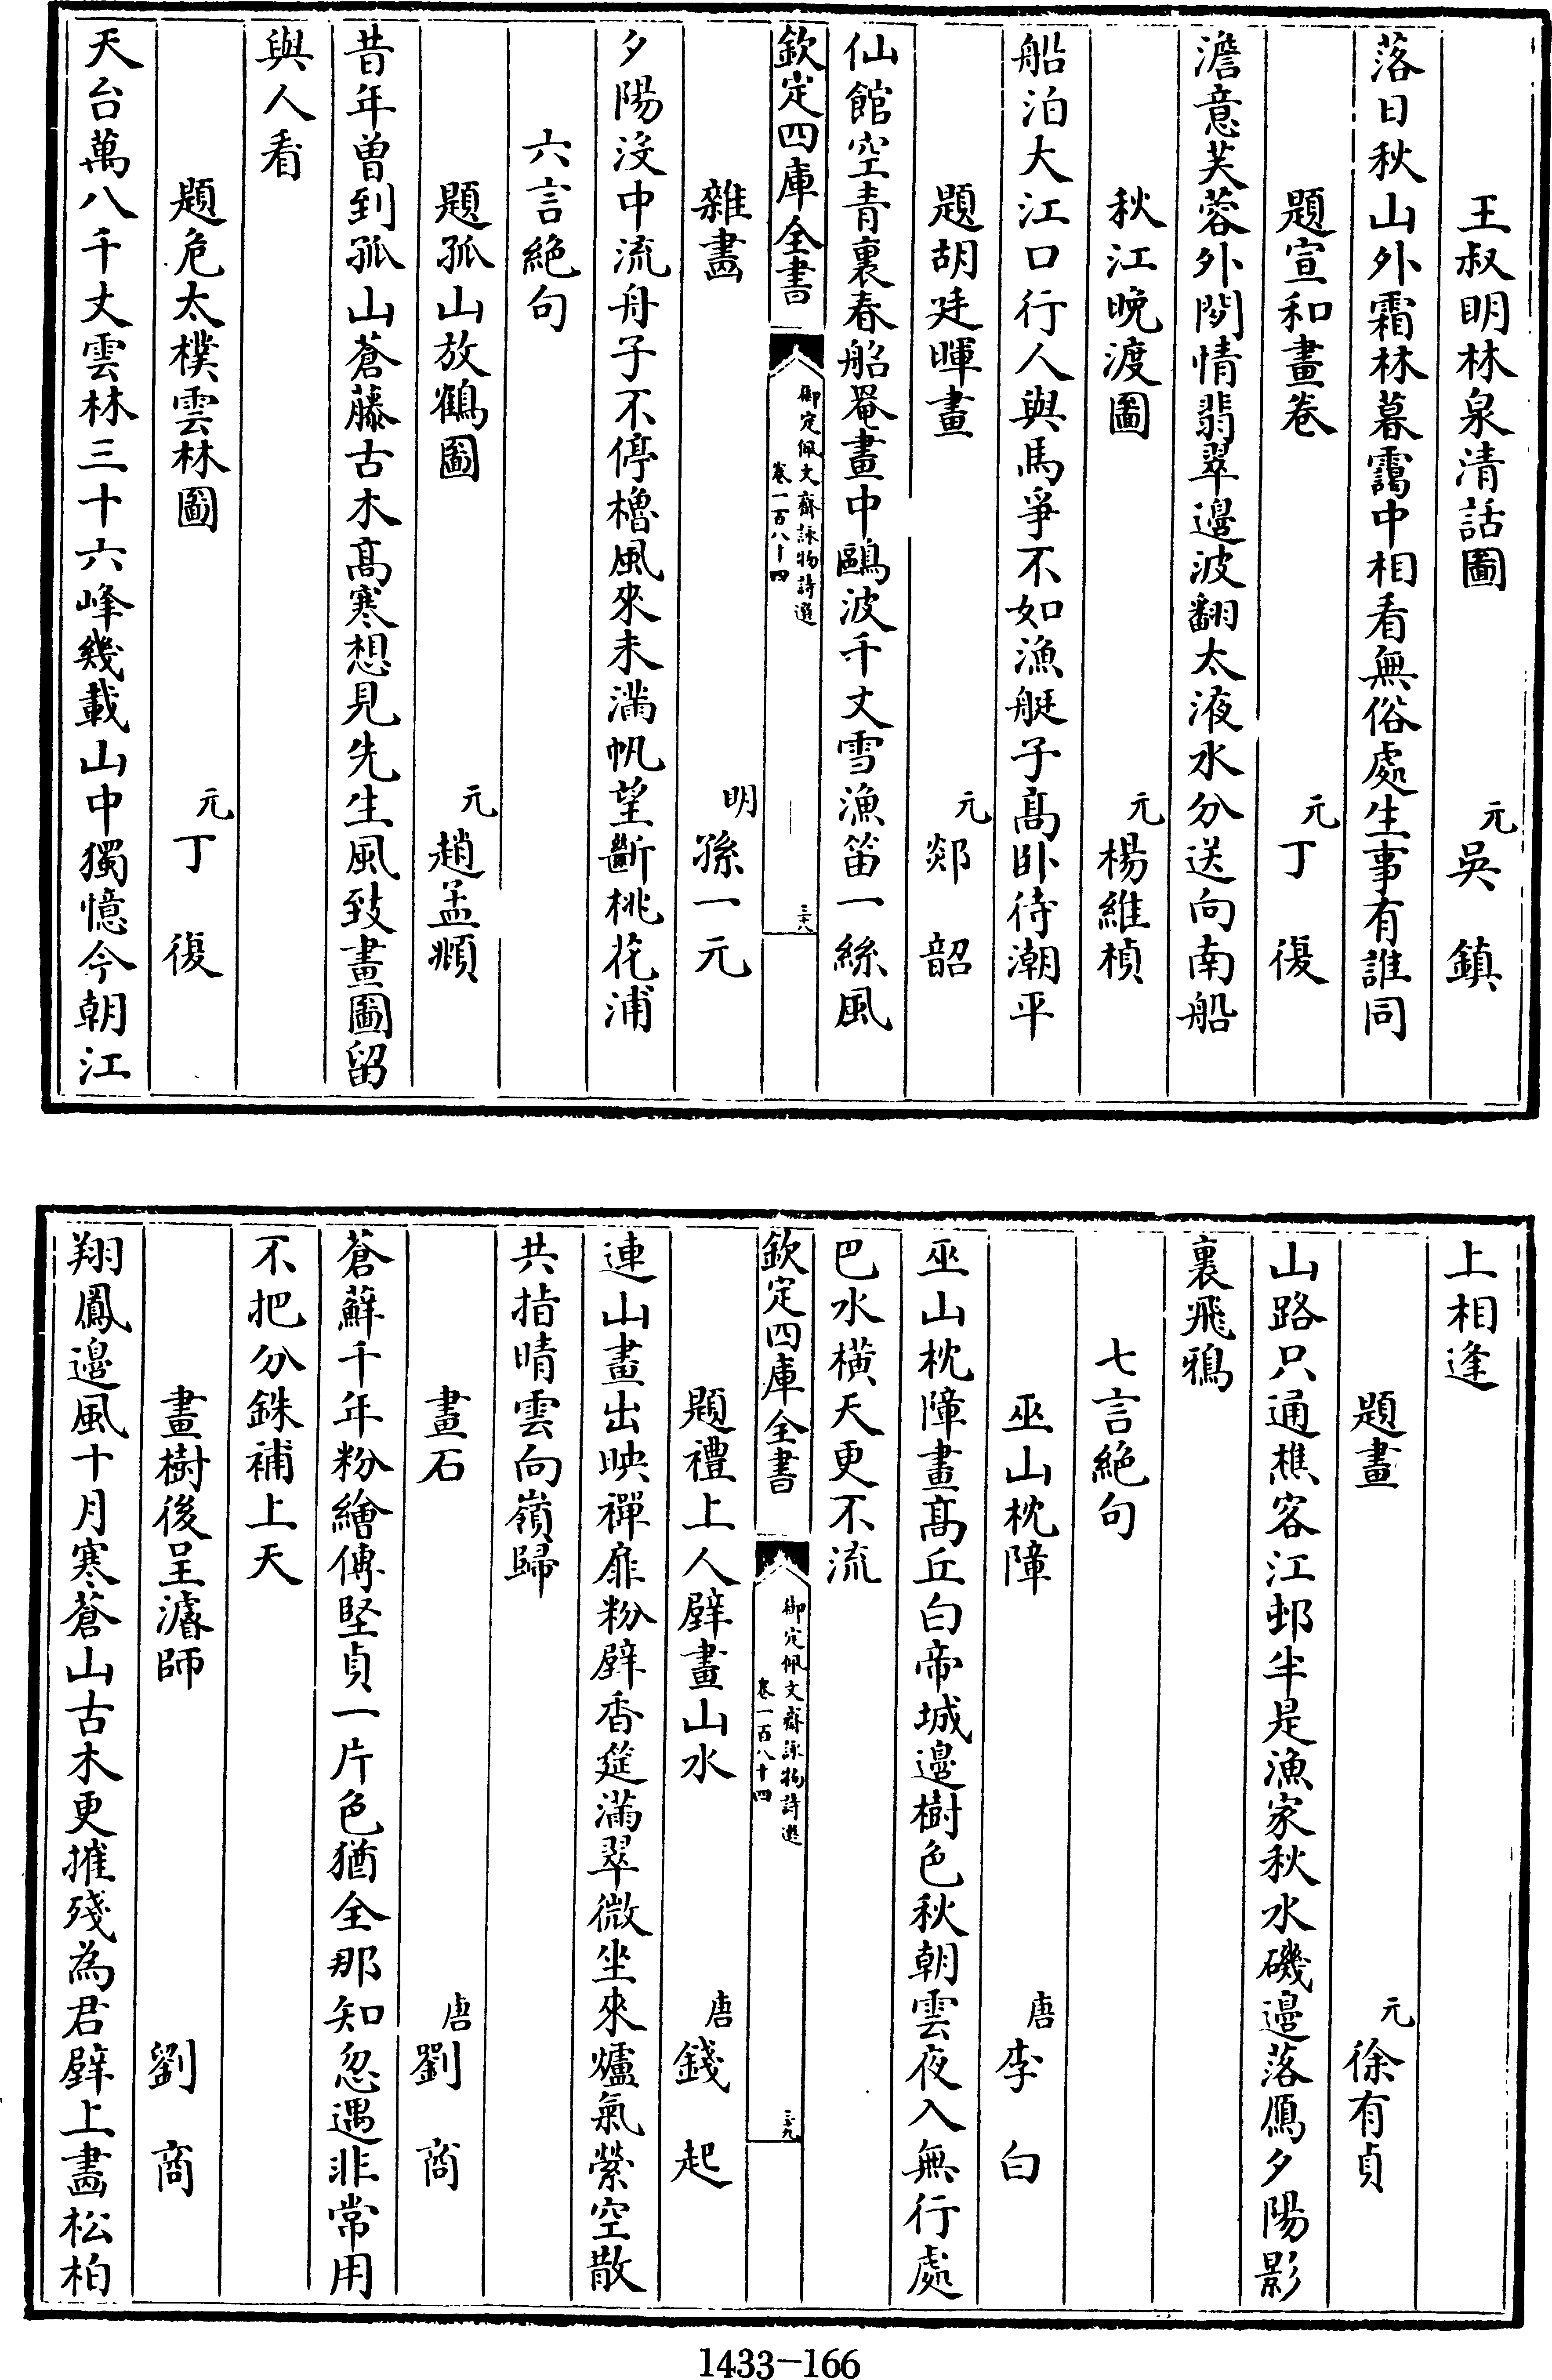 王叔明林泉清話圖　元吳　鎮
落日秋山外霜林暮靄中相看無俗處生事有誰同
題宣和畫卷　元丁　復
澹意芙蓉外閒情翡翠邊波翻太液水分送向南船
秋江晚渡圖　元楊維楨
船泊大江口行人與馬爭不如漁艇子高卧待潮平
題胡廷暉畫　元郯　韶
仙館空青裏春船罨畫中鷗波千丈雪漁笛一絲風
欽定四庫全書　御定佩文齋詠物詩選　卷一百八十四　三十八
雜畫　明孫一元
夕陽沒中流舟子不停櫓風來未滿帆望斷桃花浦
六言絶句
題孤山放鶴圖　元趙孟頫
昔年曾到孤山蒼藤古木髙寒想見先生風致畫圖留
與人看
題危太樸雲林圖　元丁　復
天台萬八千丈雲林三十六峰幾載山中獨憶今朝江
上相逢
題畫　元徐有貞
山路只通樵客江邨半是漁家秋水磯邊落鴈夕陽影
裏飛鴉
七言絶句
巫山枕障　唐李　白
巫山枕障畫髙丘白帝城邊樹色秋朝雲夜入無行處
巴水橫天更不流
欽定四庫全書　御定佩文齋詠物詩選　卷一百八十四　三十九
題禮上人壁畫山水　唐錢　起
連山畫出映禪扉粉壁香筵滿翠微坐來爐氣縈空散
共指晴雲向嶺歸
畫石　唐劉　商
蒼蘚千年粉繪傳堅貞一片色猶全那知忽遇非常用
不把分銖補上天
畫樹後呈濬師　劉　商
翔鳳邊風十月寒蒼山古木更摧殘為君壁上畵松柏
1433-166